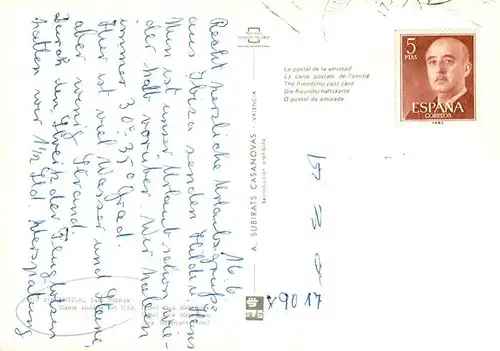 16.6.
Recht herzliche Urlaubsgrüße
aus Ibiza senden Hildi u. Hans
Nun ist unser Urlaub schon wie-
der halb vorüber. Wir haben
immer 30°-35° Grad.
Hier ist viel Wasser und Steine,
aber wenig Strand.
Durch den Streik der Fluglotsen
hatten wir 1 1/2 Std. Verspätung
La postal de la amistad
La carte postale de l'amitié
The friendship post card
Die Freundschaftskarte
O postal da amizade
A. SUBIRATS CASANOVAS - VALENCIA
5
PTAS
ESPAÑA
CORREOS
x9017